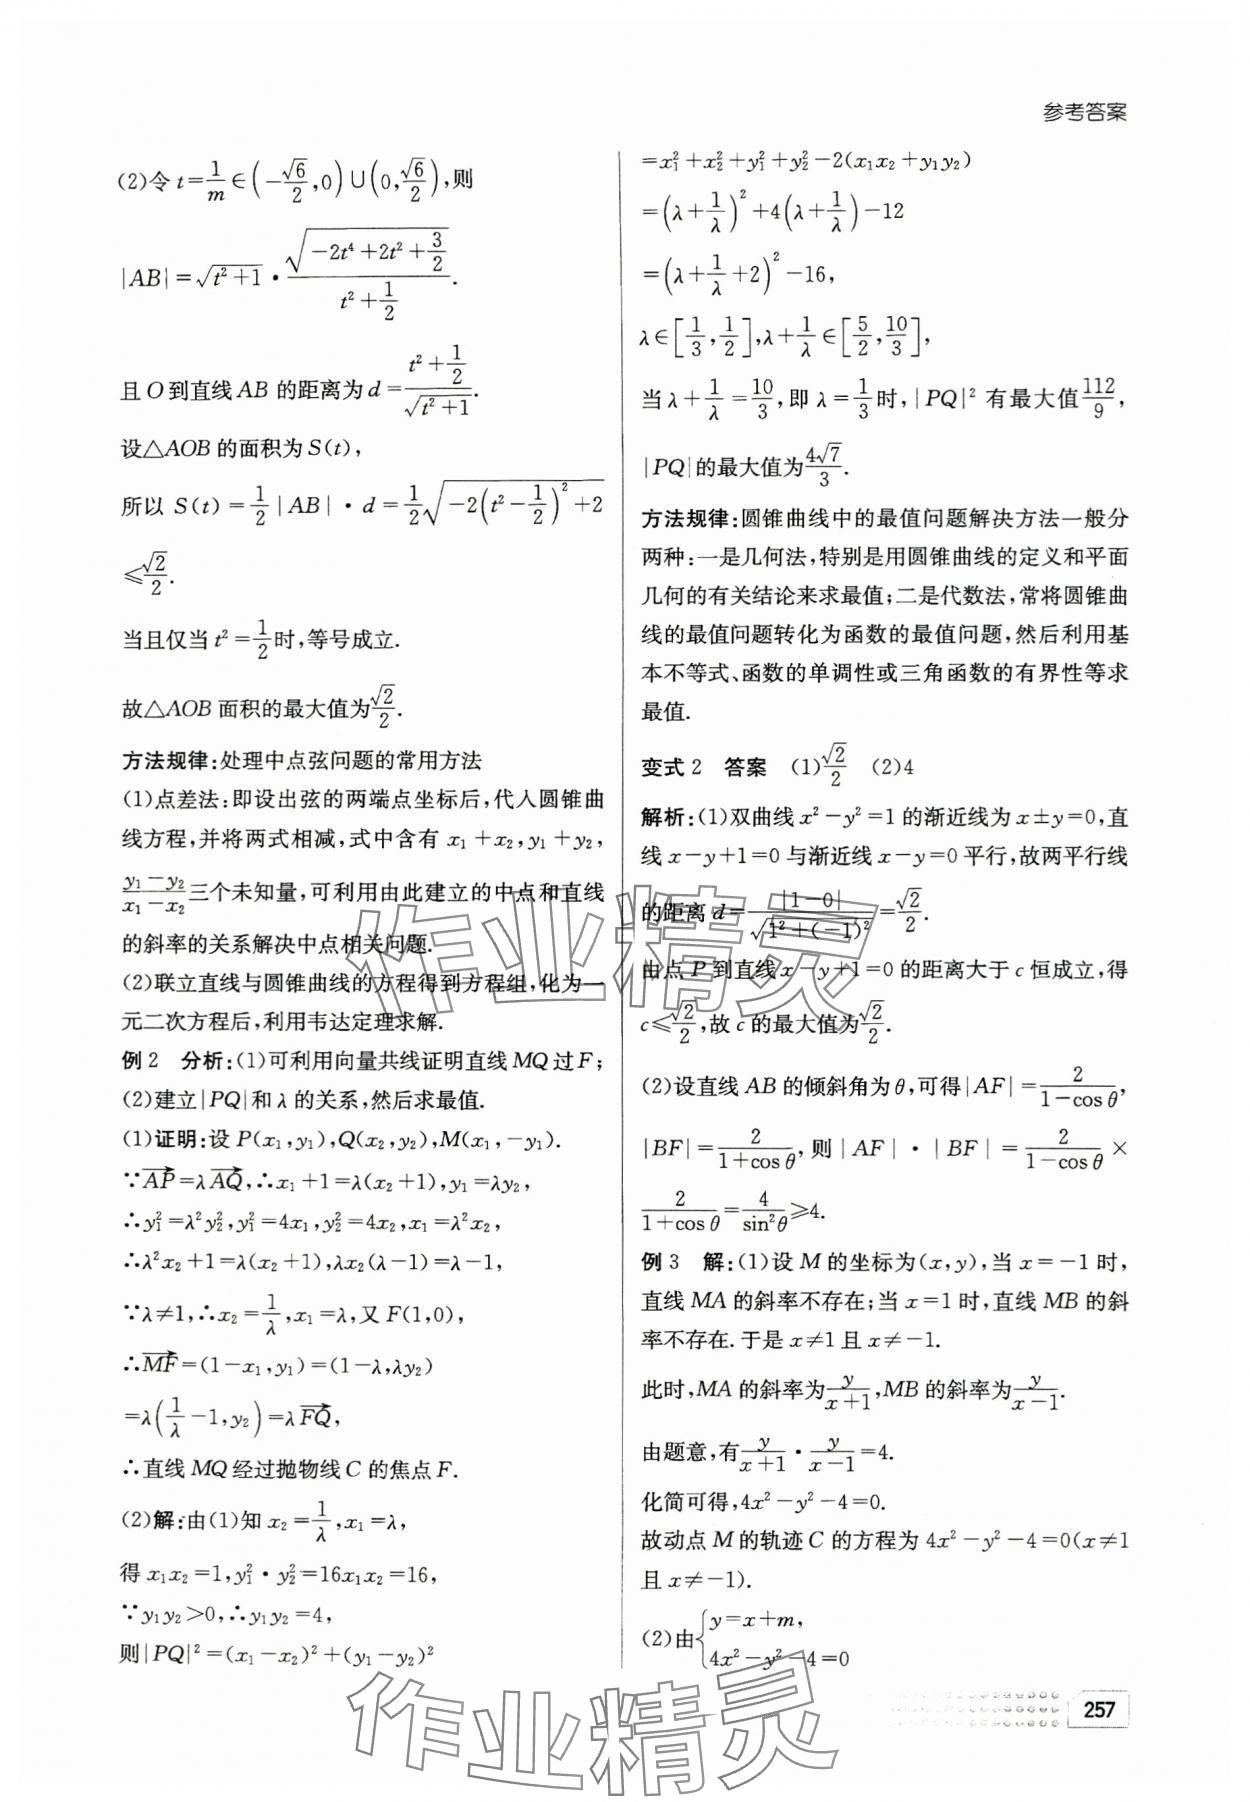 参考答案
(2)令 t=1/m∈(-√6/2,0)∪(0,√6/2),则
|AB|=√(t²+1)·√(-2t⁴+2t²+3/2)/(t²+1/2).
且 O 到直线 AB 的距离为 d=(t²+1/2)/√(t²+1).
设△AOB 的面积为 S(t),
所以 S(t)=1/2|AB|·d=1/2√(-2(t²-1/2)²+2)
≤√2/2.
当且仅当 t²=1/2时,等号成立.
故△AOB 面积的最大值为√2/2.
方法规律:处理中点弦问题的常用方法
(1)点差法:即设出弦的两端点坐标后,代入圆锥曲
线方程,并将两式相减,式中含有 x₁+x₂,y₁+y₂,
(y₁-y₂)/(x₁-x₂)三个未知量,可利用由此建立的中点和直线
的斜率的关系解决中点相关问题.
(2)联立直线与圆锥曲线的方程得到方程组,化为一
元二次方程后,利用韦达定理求解.
例 2 分析:(1)可利用向量共线证明直线 MQ 过 F;
(2)建立|PQ|和 λ 的关系,然后求最值.
(1)证明:设 P(x₁,y₁),Q(x₂,y₂),M(x₁,-y₁).
∵AP→=λAQ→,∴x₁+1=λ(x₂+1),y₁=λy₂,
∴y₁²=λ²y₂²,y₁²=4x₁,y₂²=4x₂,x₁=λ²x₂,
∴λ²x₂+1=λ(x₂+1),λx₂(λ-1)=λ-1,
∵λ≠1,∴x₂=1/λ,x₁=λ,又 F(1,0),
∴MF→=(1-x₁,y₁)=(1-λ,λy₂)
=λ(1/λ-1,y₂)=λFQ→,
∴直线 MQ 经过抛物线 C 的焦点 F.
(2)解:由(1)知 x₂=1/λ,x₁=λ,
得 x₁x₂=1,y₁²·y₂²=16x₁x₂=16,
∵y₁y₂>0,∴y₁y₂=4,
则|PQ|²=(x₁-x₂)²+(y₁-y₂)²
=x₁²+x₂²+y₁²+y₂²-2(x₁x₂+y₁y₂)
=(λ+1/λ)²+4(λ+1/λ)-12
=(λ+1/λ+2)²-16,
λ∈[1/3,1/2],λ+1/λ∈[5/2,10/3],
当 λ+1/λ=10/3,即 λ=1/3时,|PQ|² 有最大值112/9,
|PQ|的最大值为4√7/3.
方法规律:圆锥曲线中的最值问题解决方法一般分
两种:一是几何法,特别是用圆锥曲线的定义和平面
几何的有关结论来求最值;二是代数法,常将圆锥曲
线的最值问题转化为函数的最值问题,然后利用基
本不等式、函数的单调性或三角函数的有界性等求
最值.
变式 2 答案 (1)√2/2 (2)4
解析:(1)双曲线 x²-y²=1 的渐近线为 x±y=0,直
线 x-y+1=0 与渐近线 x-y=0 平行,故两平行线
的距离 d=|1-0|/√(1²+(-1)²)=√2/2.
由点 P 到直线 x-y+1=0 的距离大于 c 恒成立,得
c≤√2/2,故 c 的最大值为√2/2.
(2)设直线 AB 的倾斜角为 θ,可得|AF|=2/(1-cosθ),
|BF|=2/(1+cosθ),则|AF|·|BF|=2/(1-cosθ)×
2/(1+cosθ)=4/sin²θ≥4.
例 3 解:(1)设 M 的坐标为(x,y),当 x=-1 时,
直线 MA 的斜率不存在;当 x=1 时,直线 MB 的斜
率不存在.于是 x≠1 且 x≠-1.
此时,MA 的斜率为y/(x+1),MB 的斜率为y/(x-1).
由题意,有y/(x+1)·y/(x-1)=4.
化简可得,4x²-y²-4=0.
故动点 M 的轨迹 C 的方程为 4x²-y²-4=0(x≠1
且 x≠-1).
(2)由{y=x+m,
4x²-y²-4=0
257
作业精灵
作业精灵